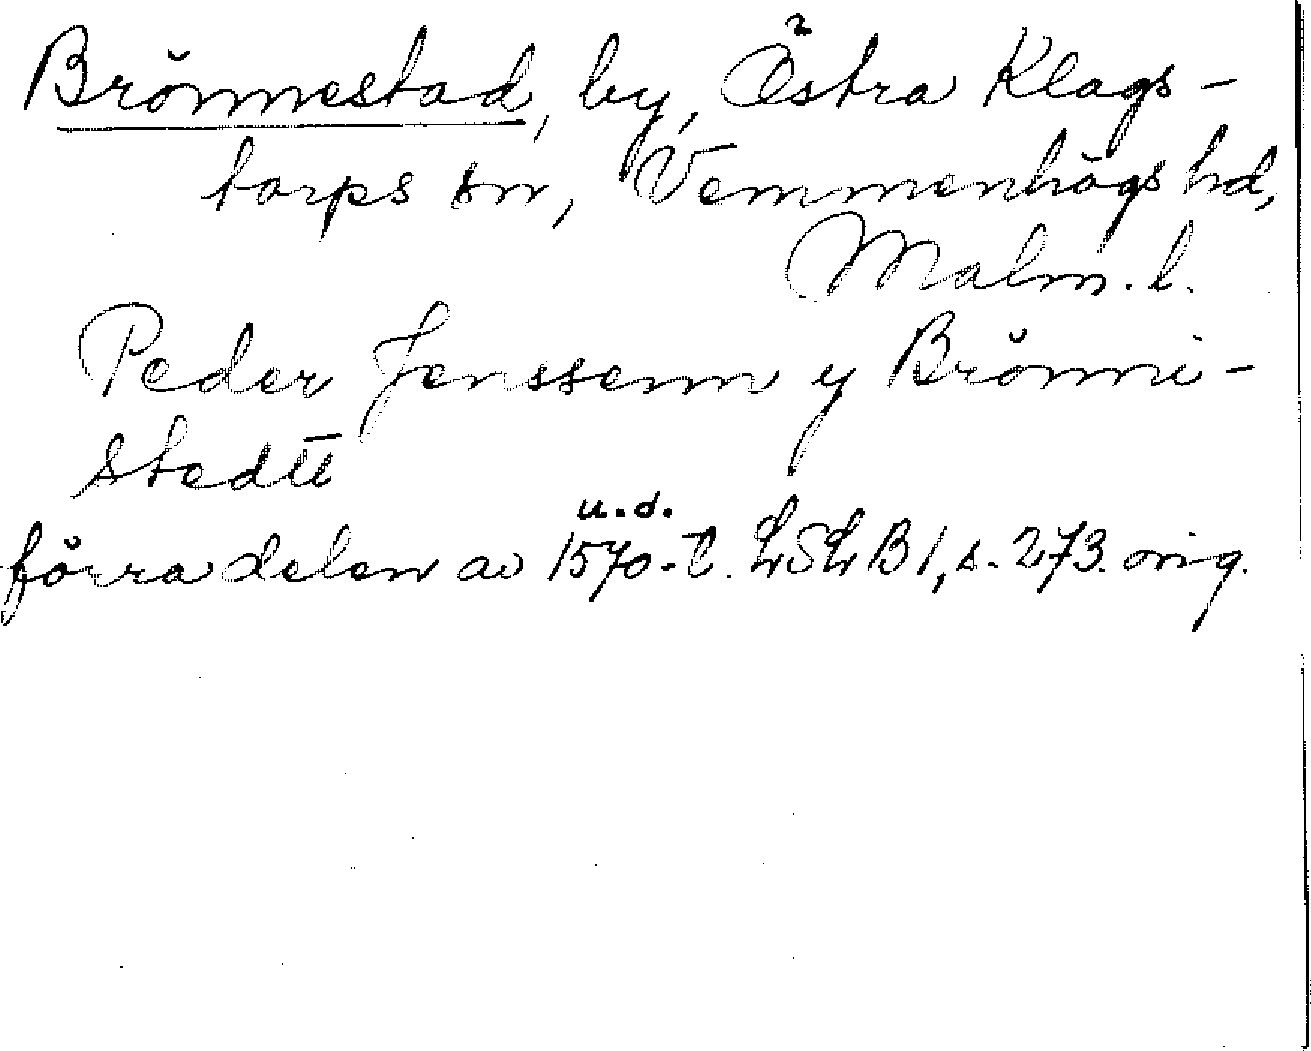 Brönnestad, by, Östra Klags-
torps sn, Vemmenhögs hd,
Malm. l.
Peder Jenssenn y Brönni-
stedtt
u.d.
förra delen av 1570-t. LSLB1, s. 273. orig.